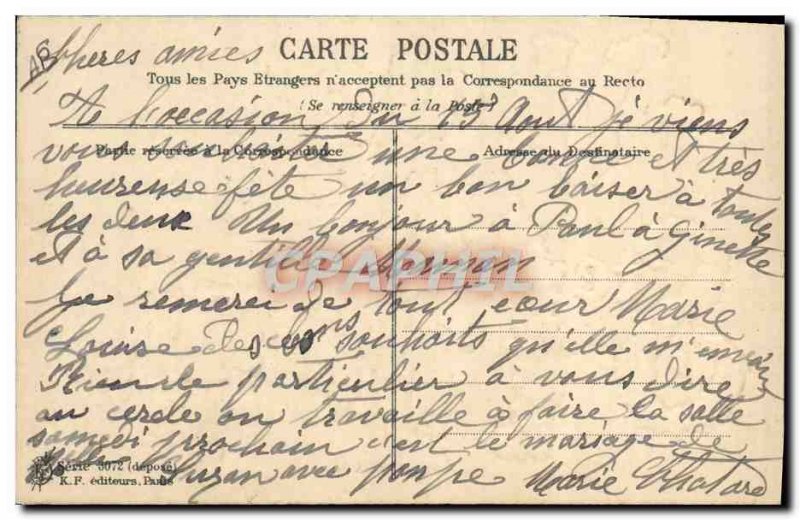 Chères amies CARTE POSTALE
Tous les Pays Etrangers n'acceptent pas la Correspondance au Recto
(Se renseigner à la Poste)
A l'occasion du 15 Aout je viens
Partie réservée à la Correspondance
Adresse du Destinataire
vous souhaité une bonne et très
heureuse fête un bon baiser à toutes
les deux Un bonjour à Paul à Ginette
et à sa gentille Maman
CPAPHIL
Je remercie de tout cœur Marie
Louise des bons souhaits qu'elle m'envoie
Rien de particulier à vous dire
au cercle on travaille à faire la salle
samedi prochain c'est le mariage de
Série 3072 (déposé)
Suzan avec pompe Marie Chatard
K.F. éditeurs, Paris